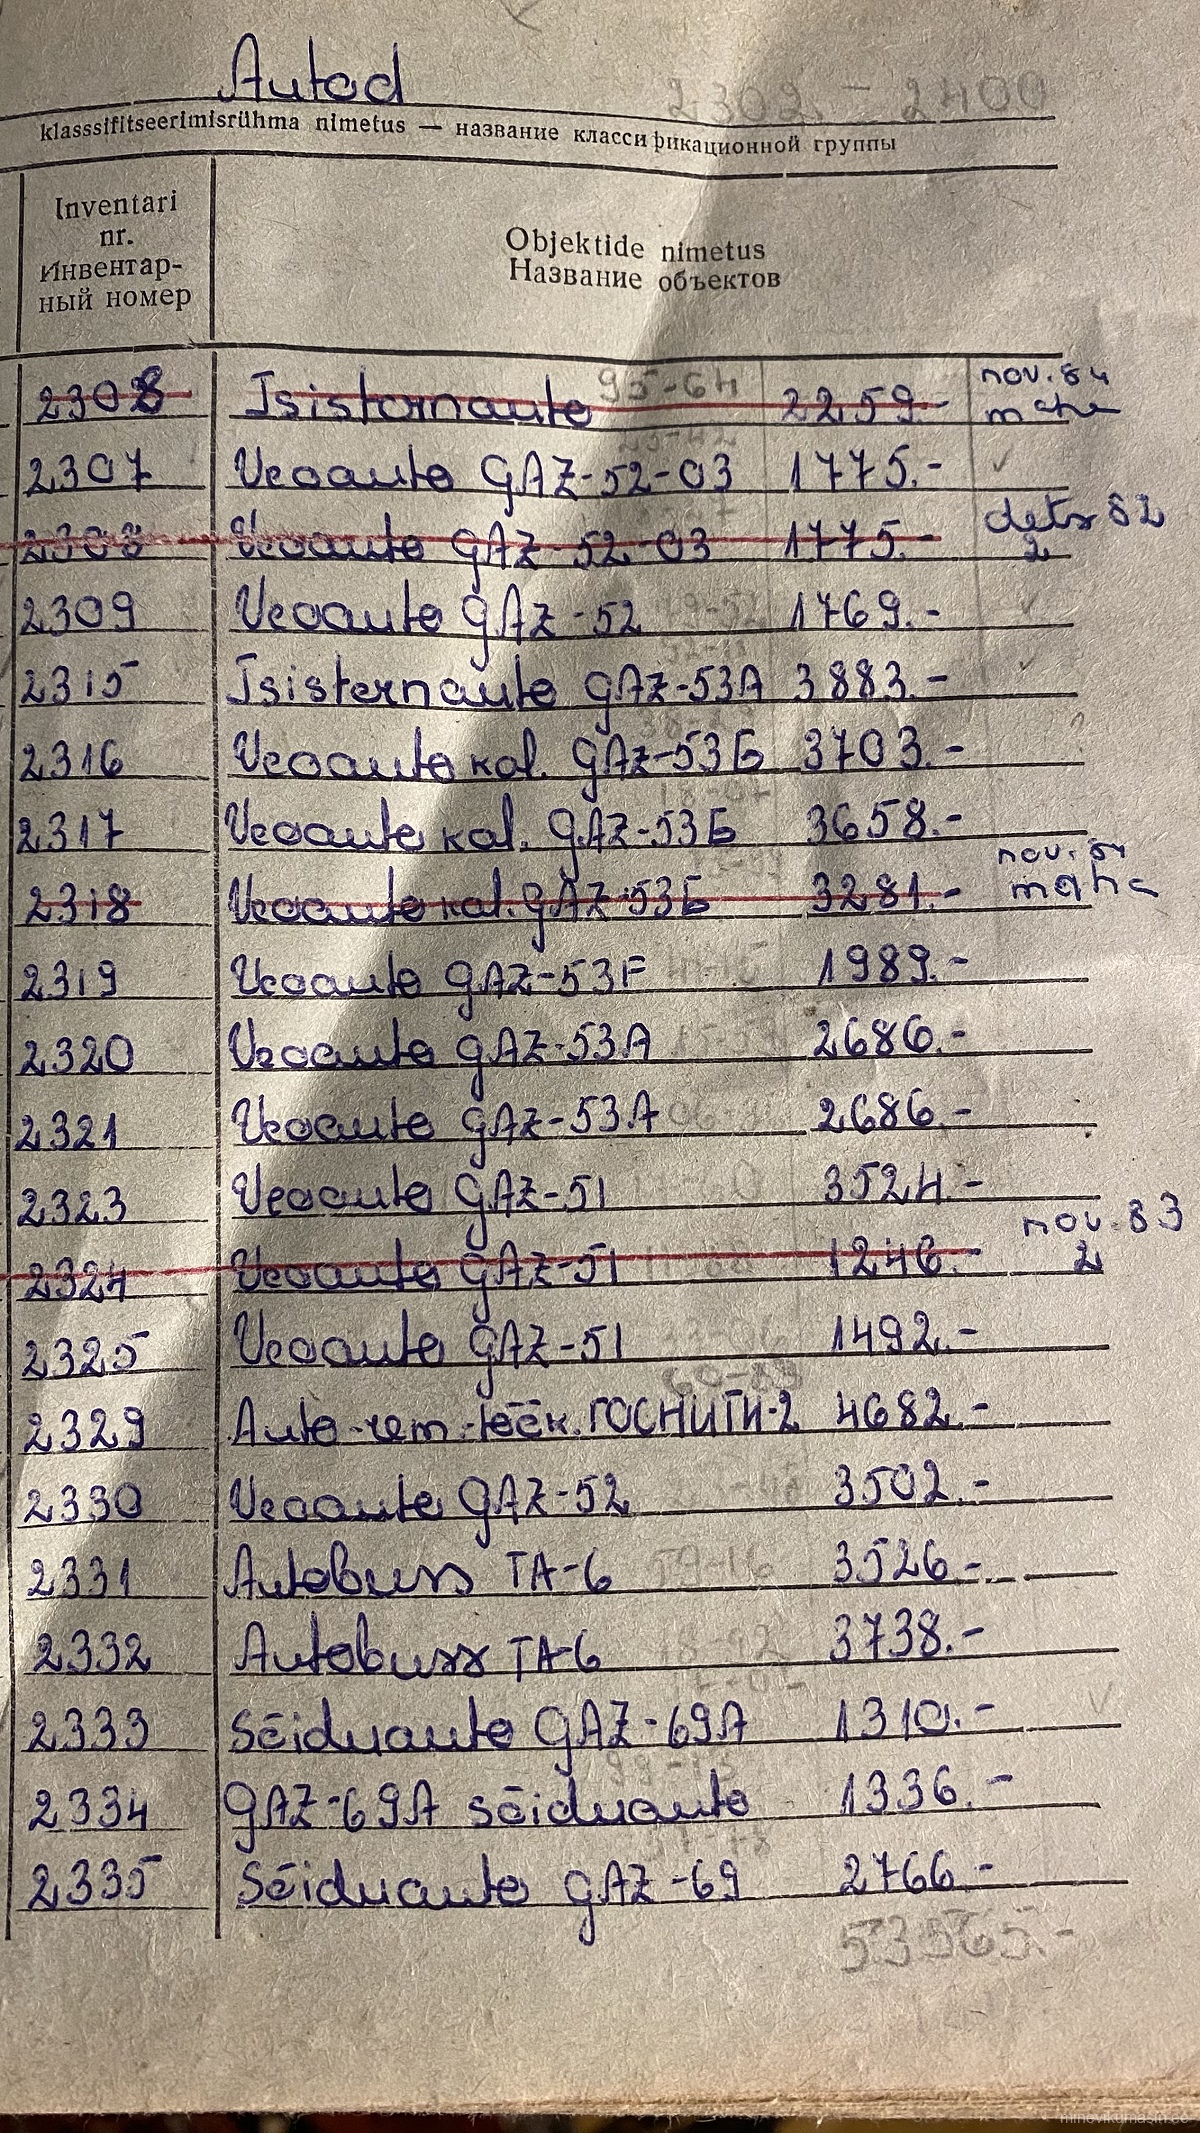 Autod 2302 - 2400
klasssifitseerimisrühma nimetus — название классификационной группы
Inventari
nr.
Инвентар-
ный номер
Objektide nimetus
Название объектов
2308 Tsisternauto 95-64 2259.- nov. 84
maha
2307 Veoauto GAZ-52-03 1775.- ✓
2308 Veoauto GAZ-52-03 1775.- dets 82
2
2309 Veoauto GAZ-52 1769.- ✓
2315 Tsisternauto GAZ-53A 3883.- ✓
2316 Veoauto kal. GAZ-53Б 3703.-
2317 Veoauto kal. GAZ-53Б 3658.-
2318 Veoauto kal. GAZ-53Б 3281.- nov. 84
maha
2319 Veoauto GAZ-53F 1989.-
2320 Veoauto GAZ-53A 2686.-
2321 Veoauto GAZ-53A 2686.-
2323 Veoauto GAZ-51 3524.-
2324 Veoauto GAZ-51 1246.- nov. 83
2
2325 Veoauto GAZ-51 1492.-
2329 Auto-rem.-töök. ГОСНИТИ-2 4682.-
2330 Veoauto GAZ-52 3502.-
2331 Autobuss TA-6 59-16 3526.-
2332 Autobuss TA-6 18-92 3738.-
2333 Sõiduauto GAZ-69A 1310.- ✓
2334 GAZ-69A sõiduauto 1336.-
2335 Sõiduauto GAZ-69 2766.-
minevikumasin.ee